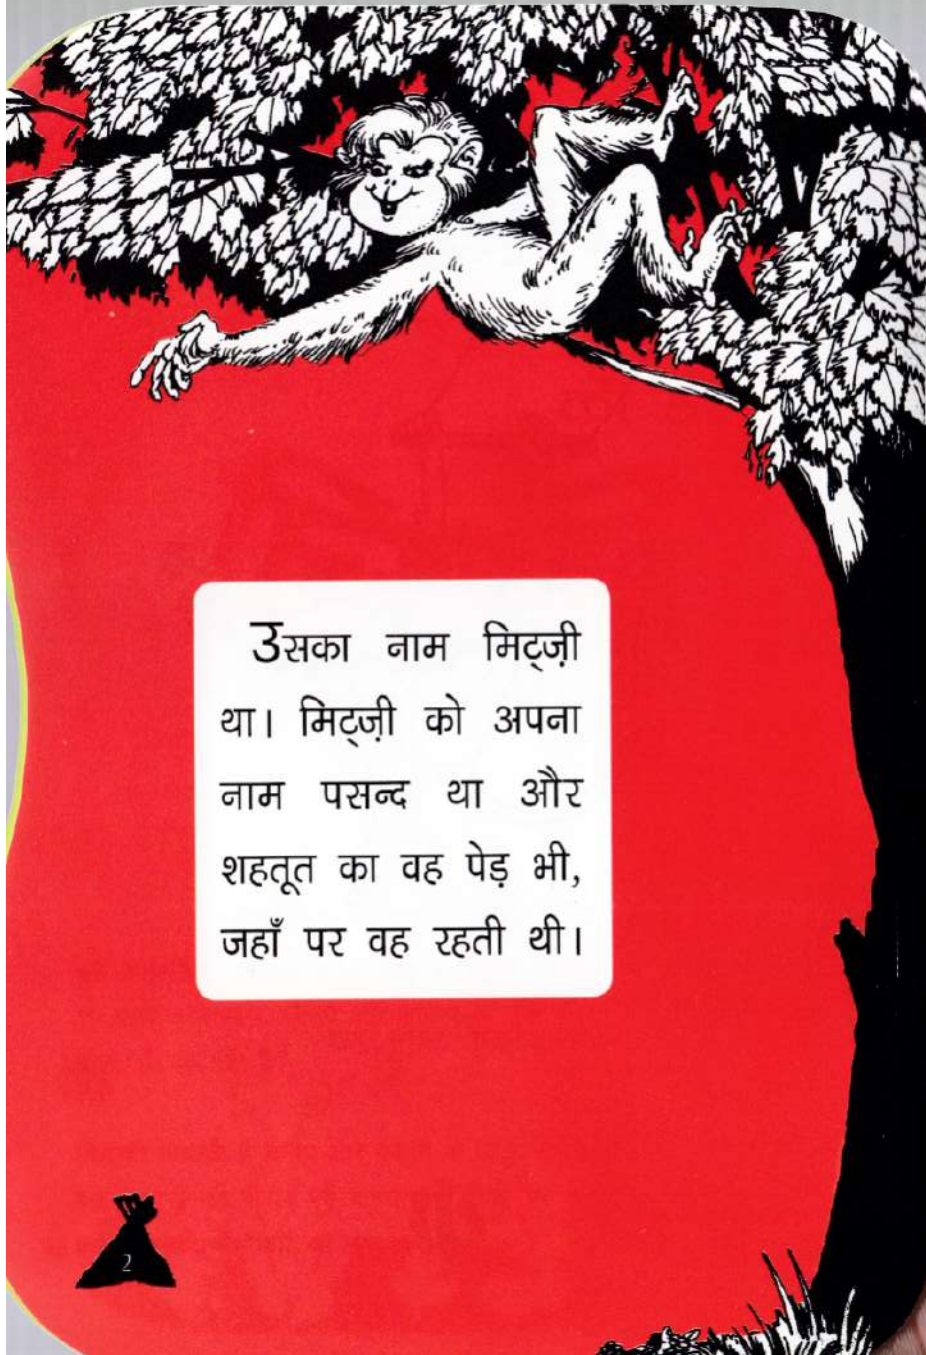 उसका नाम मिट्ज़ी
था। मिट्ज़ी को अपना
नाम पसन्द था और
शहतूत का वह पेड़ भी,
जहाँ पर वह रहती थी।
2